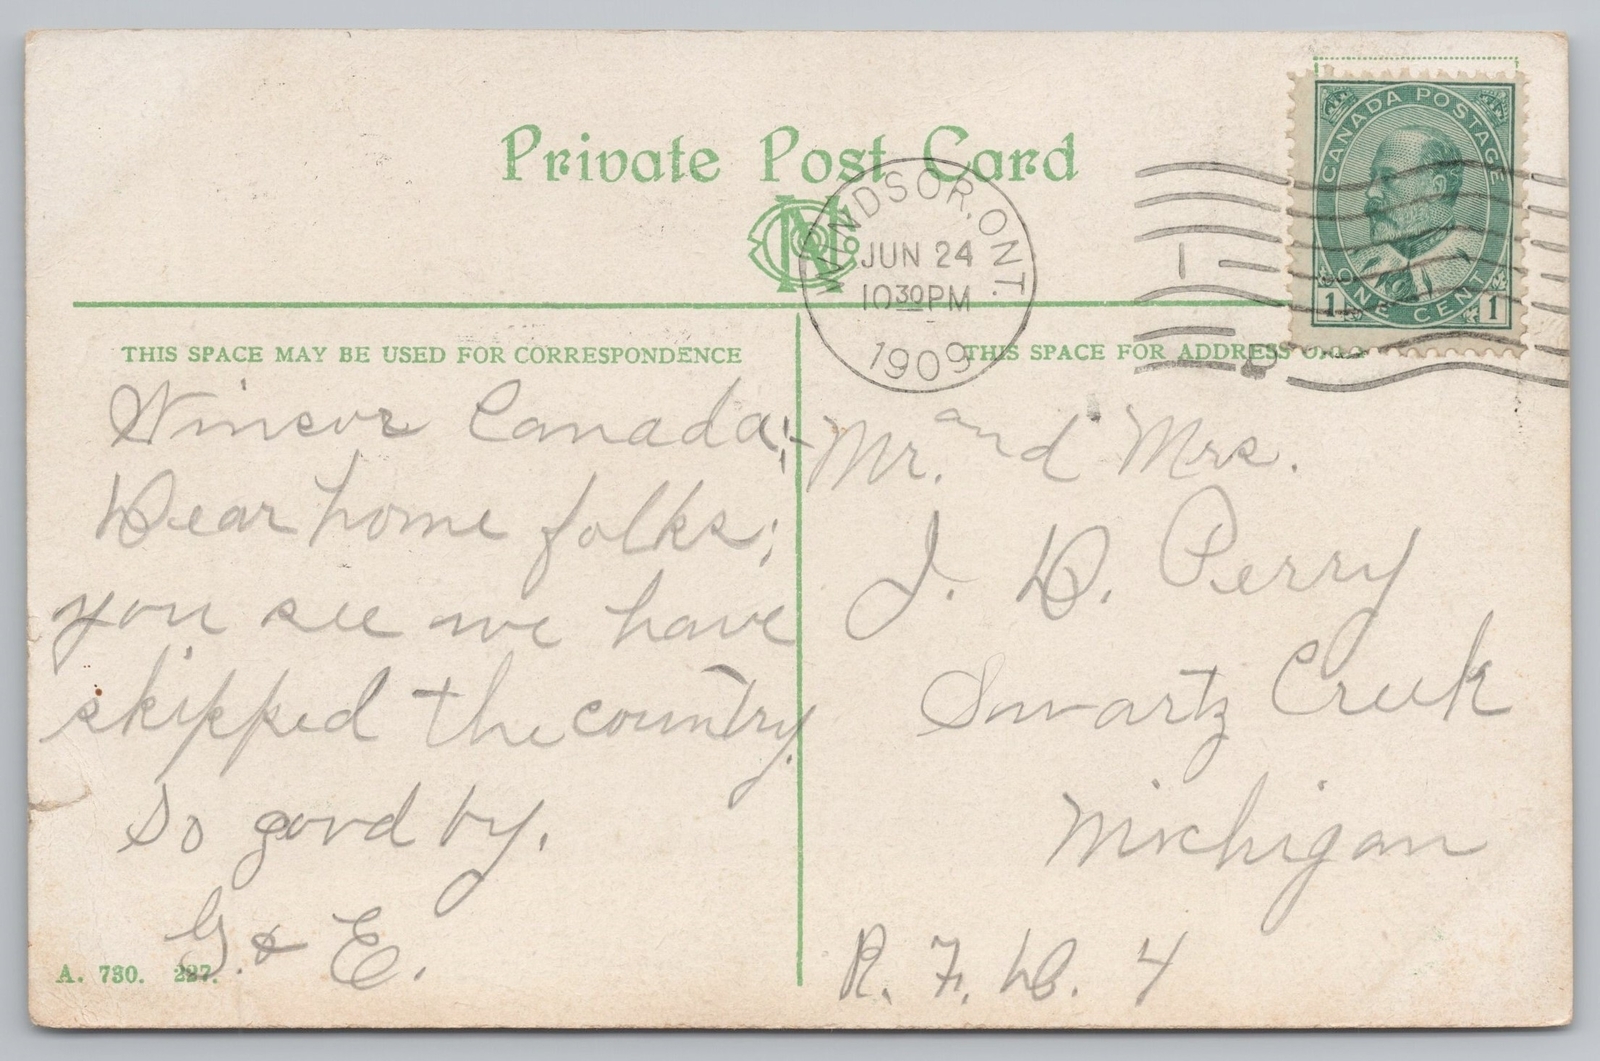 Private Post Card
WINDSOR, ONT.
JUN 24
10 30 PM
1909
CANADA POSTAGE
1 ONE CENT 1
THIS SPACE MAY BE USED FOR CORRESPONDENCE
Winsor Canada;-
Dear home folks;
you see we have
skipped the country
so good by.
G. & E.
A. 730. 227.
THIS SPACE FOR ADDRESS ONLY
Mr. and Mrs.
J. D. Perry
Swartz Creek
Michigan
R. F. D. 4